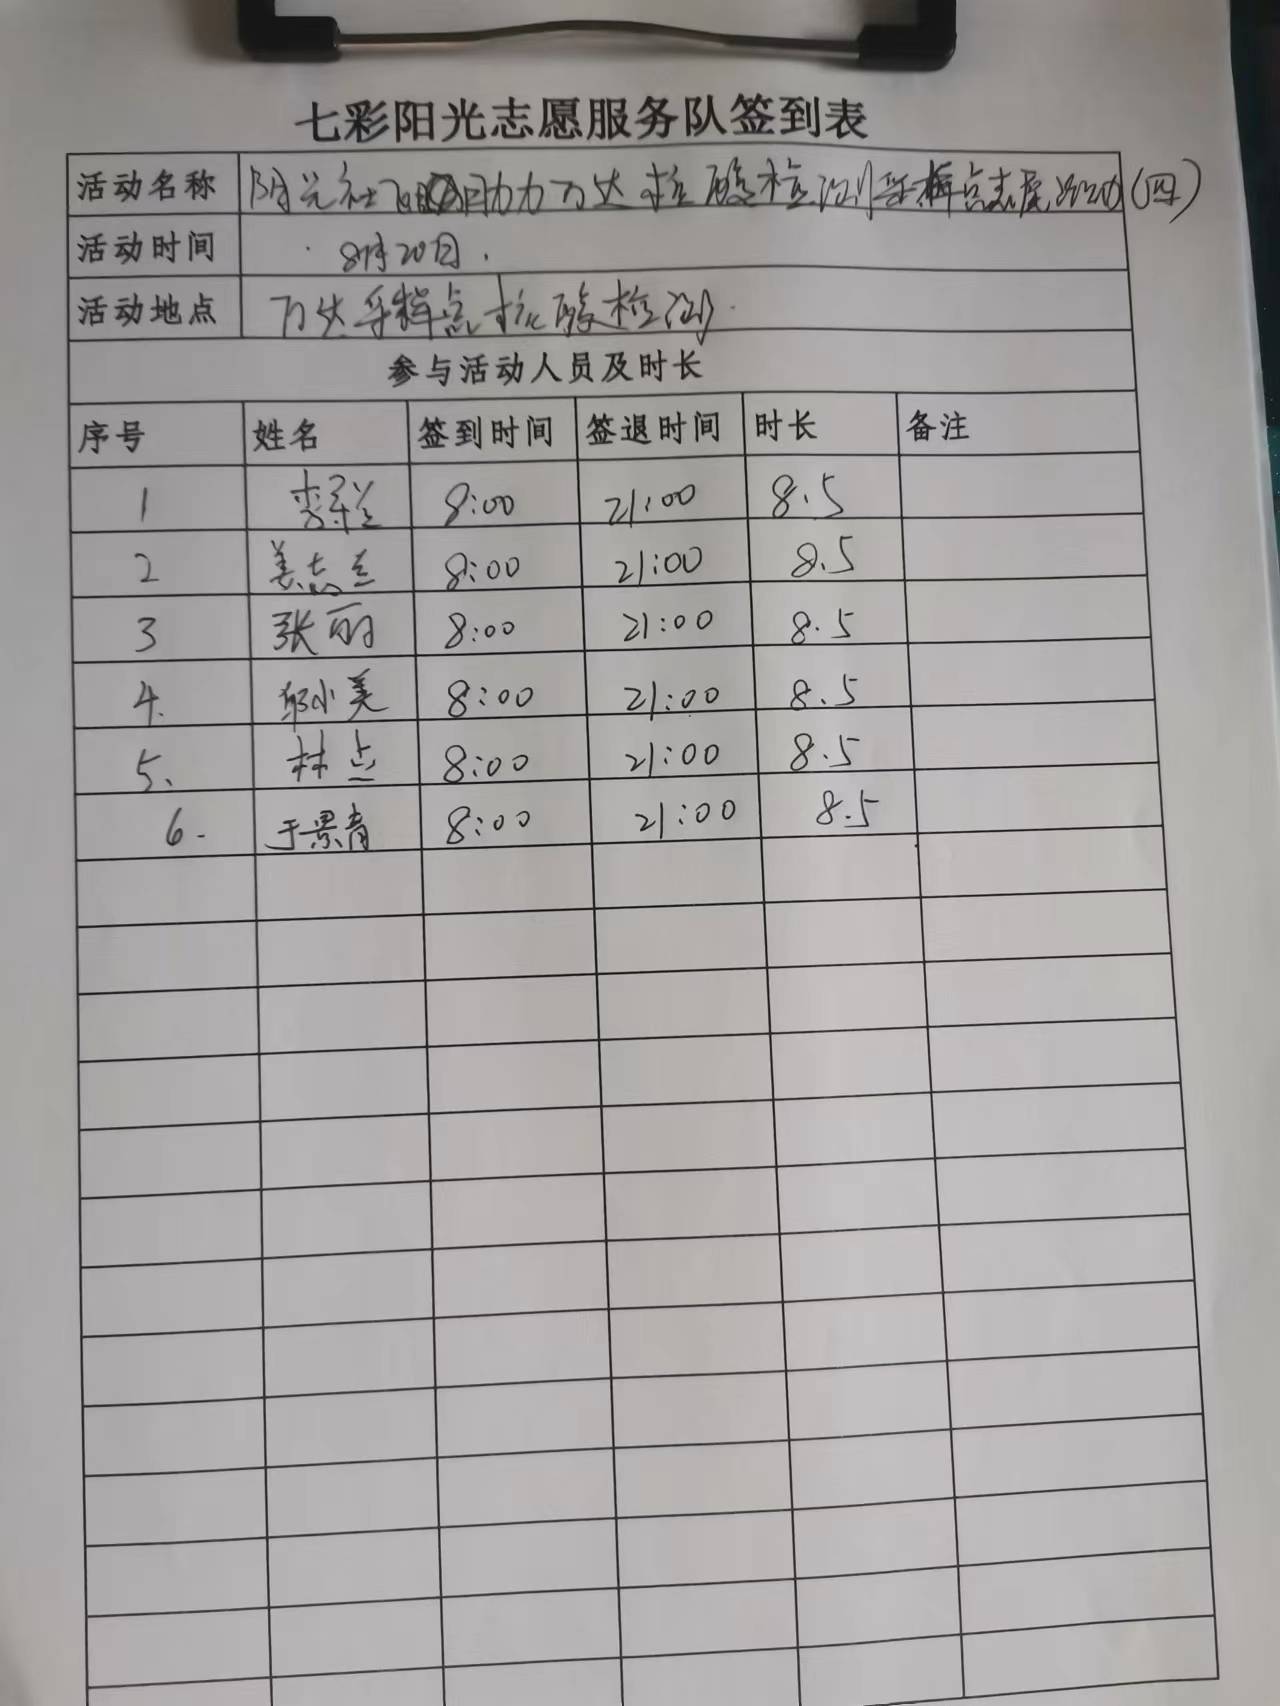 七彩阳光志愿服务队签到表
活动名称 阳光社 助力万达核酸检测采样点志愿活动(四)
活动时间 8月20日.
活动地点 万达采样点核酸检测.
参与活动人员及时长
序号 姓名 签到时间 签退时间 时长 备注
1 李 兰 8:00 21:00 8.5
2 姜志兰 8:00 21:00 8.5
3 张丽 8:00 21:00 8.5
4. 小美 8:00 21:00 8.5
5、 林 8:00 21:00 8.5
6. 于景青 8:00 21:00 8.5